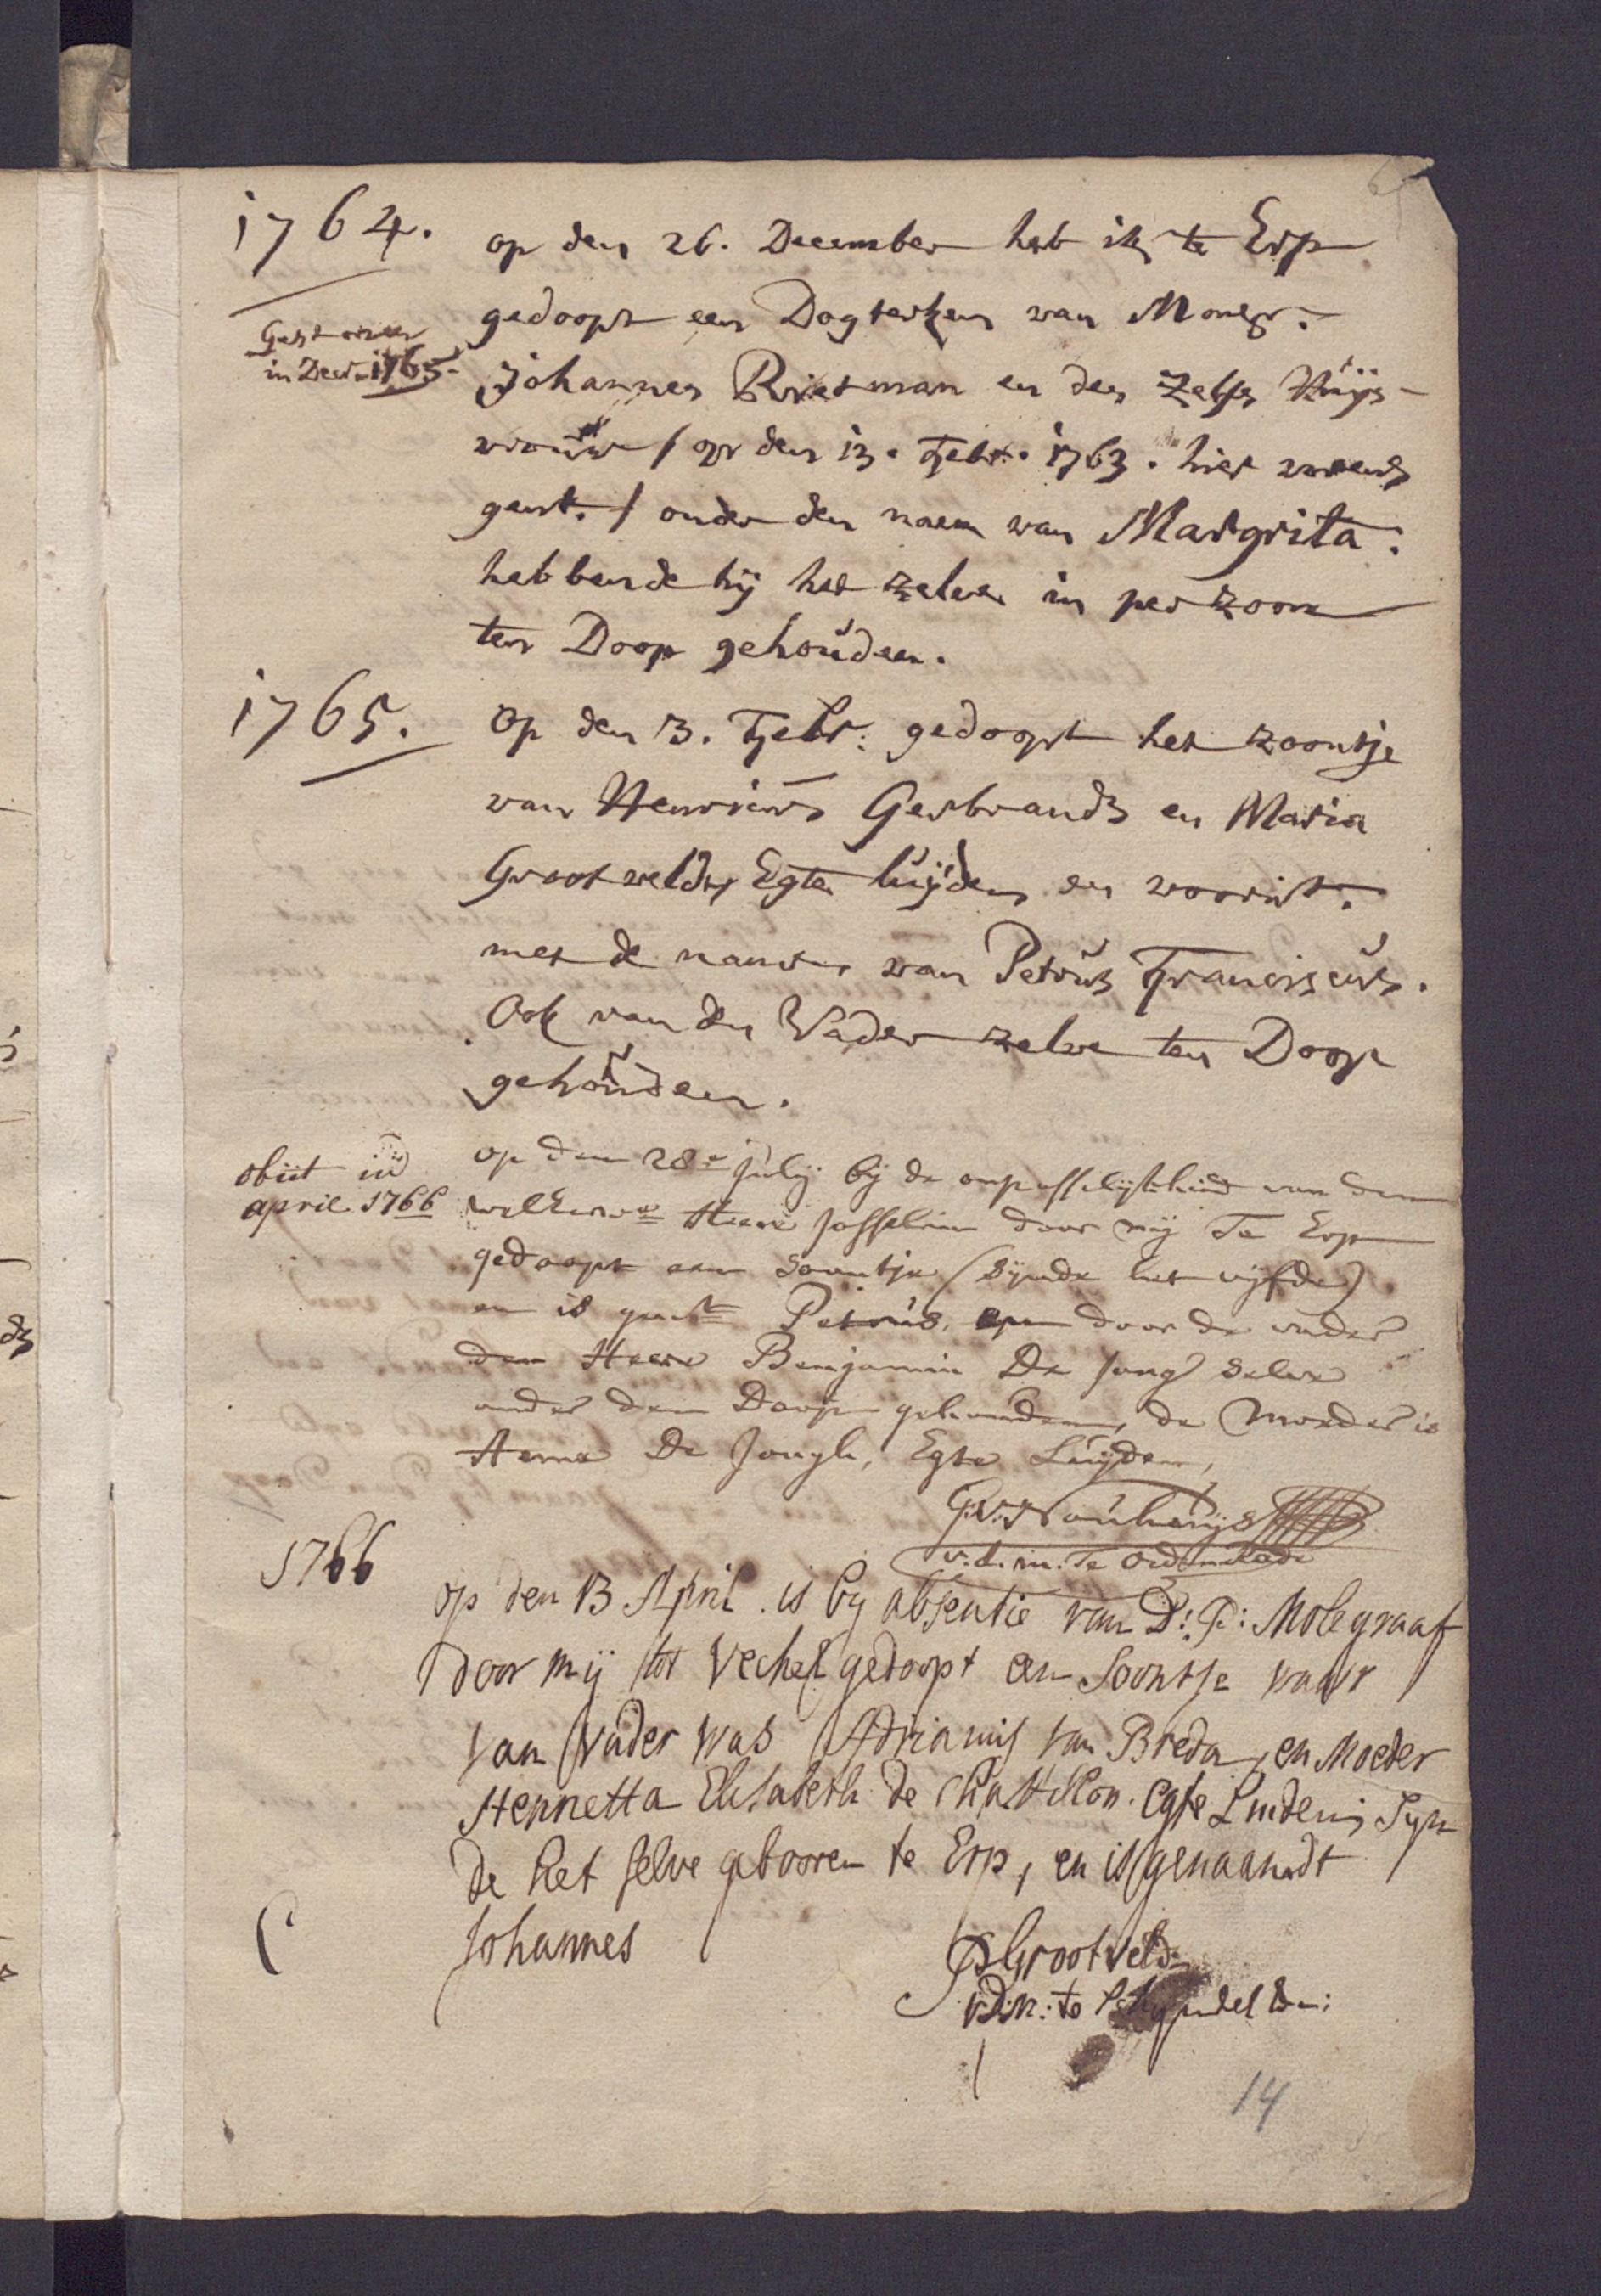 1764. op den 26. December heb ik te Erp
gedoopt een Dogterken van Monsr.
Gestorven
in Decr. 1765.
Johannes Rietman en des zelfs Huijs-
vrouw / op den 13. Febr. 1763. hier vooren
gent. / onder den naem van Margrita.
hebbende hij het zelve in perzoon
ten Doop gehouden.
1765. Op den 3. Febr: gedoopt het zoontje
van Henricus Gerbrands en Maria
Grootveldt, Egte luijden en woonst.
met de namen van Petrus Franciscus.
Ook van den Vader zelve ten Doop
gehouden.
obiit in
april 1766
op den 28e Julij bij de onpasselijkheid van den
welEerw. Heere Josselin door mij Te Erp
gedoopt een soontje (sijnde het vijfde)
en is gent. Petrus, en door de vader
den Heere Benjamin De Jongh selve
onder den Doop gehouden, de Moeder is
Anna De Jongh, Egte Luijden,
v.d.m. Te Oedenrode
1766
op den 13 April is by absentie van D: P: Molegraaf
door mij tot Vechel gedoopt een Soontje waar
van Vader was Adrianus van Breda, en Moeder
Henretta Elisabeth de Chattillon. Egte Luiden, Syn
de het selve gebooren te Erp, en is genaamdt
Johannes
Grootveld
VDM: te Schyndel &c:
14